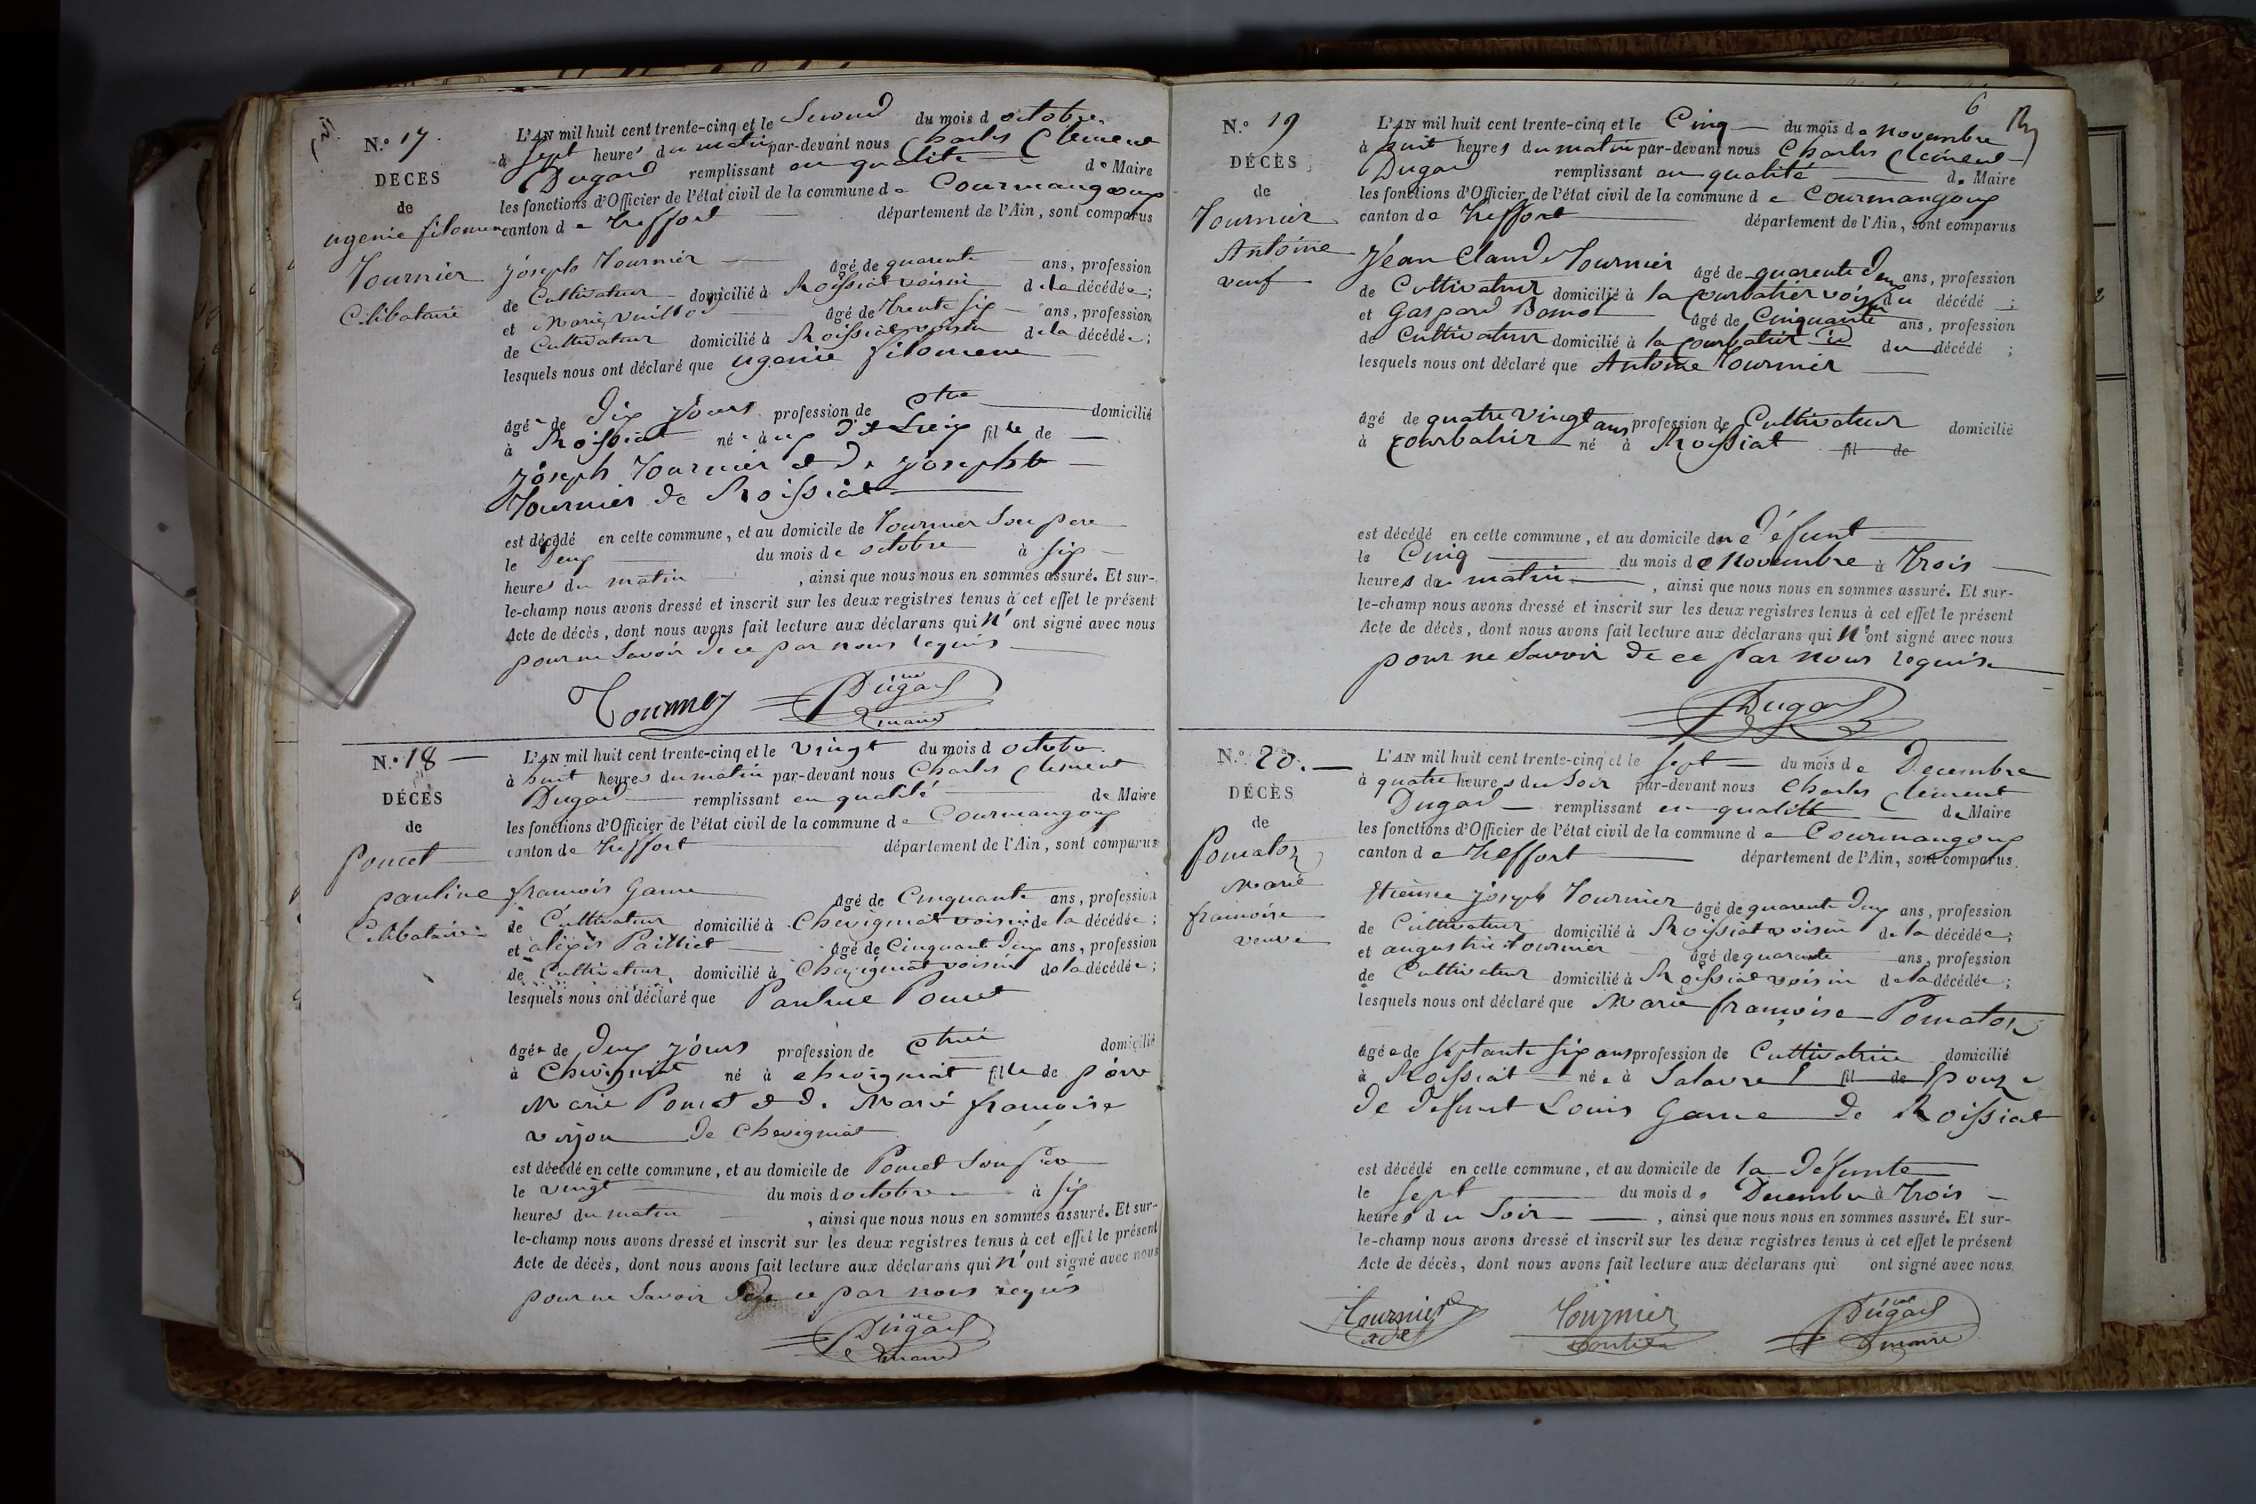 N.° 17.
DÉCES
de
ugenie filomene
Tournier
Célibataire
L'AN mil huit cent trente-cinq et le Second du mois d octobre
à Sept heures du matin par-devant nous Charles Clement
Dugard remplissant en qualité de Maire
les fonctions d'Officier de l'état civil de la commune de Courmangoux
canton de Treffort département de l'Ain, sont comparus
joseph Tournier âgé de quarente ans, profession
de Cultivateur domicilié à Roissiat voisin de la décédée;
et Marie Vuillod âgé de trente six ans, profession
de Cultivateur domicilié à Roissiat voisin de la décédée;
lesquels nous ont déclaré que ugenie filomene
âgé de dix jours profession de domicilié
à Roissiat né à fille de
joseph Tournier et de josephte
Tournier de Roissiat
est décédé en cette commune, et au domicile de Tournier Son pere
le deux du mois de octobre à six
heures du matin, ainsi que nous nous en sommes assuré. Et sur-
le-champ nous avons dressé et inscrit sur les deux registres tenus à cet effet le présent
Acte de décès, dont nous avons fait lecture aux déclarans qui n'ont signé avec nous
pour ne Savoir de ce par nous requis
Tournier Dugard maire
N.° 18
DÉCÈS
de
Poncet
pauline
Célibataire
L'AN mil huit cent trente-cinq et le vingt du mois d octobre
à huit heures du matin par-devant nous Charles Clement
Dugard remplissant en qualité de Maire
les fonctions d'Officier de l'état civil de la commune de Courmangoux
canton de Treffort département de l'Ain, sont comparus
francois Game âgé de Cinquante ans, profession
de Cultivateur domicilié à Chevigniat voisin de la décédée;
et aléxis Pailliet âgé de Cinquant deux ans, profession
de Cultivateur domicilié à Chevigniat voisin de la décédée;
lesquels nous ont déclaré que Pauline Poncet
âgée de deux jours profession de domicilié
à Chevigniat né à chevigniat fille de
Marie Poncet et de Marie francoise
de Chevigniat
est décédé en cette commune, et au domicile de Poncet Son pere
le vingt du mois d octobre à six
heures du matin, ainsi que nous nous en sommes assuré. Et sur-
le-champ nous avons dressé et inscrit sur les deux registres tenus à cet effet le présent
Acte de décès, dont nous avons fait lecture aux déclarans qui n'ont signé avec nous
pour ne Savoir de ce par nous requis
Dugard maire
6
N.° 19
DÉCÈS
de
Tournier
Antoine
veuf
L'AN mil huit cent trente-cinq et le Cinq du mois de novembre
à huit heures du matin par-devant nous Charles Clement
Dugard remplissant en qualité de Maire
les fonctions d'Officier de l'état civil de la commune de Courmangoux
canton de Treffort département de l'Ain, sont comparus
jéan Claude Tournier âgé de quarente deux ans, profession
de Cultivateur domicilié à la Courbatier voisin du décédé;
et Gaspard Bomot âgé de Cinquante ans, profession
de Cultivateur domicilié à la Courbatier id du décédé;
lesquels nous ont déclaré que Antoine Tournier
âgé de quatre vingt ans profession de Cultivateur domicilié
à Courbatier né à Roissiat fil de
est décédé en cette commune, et au domicile du défunt
le Cinq du mois de Novembre à Trois
heures du matin, ainsi que nous nous en sommes assuré. Et sur-
le-champ nous avons dressé et inscrit sur les deux registres tenus à cet effet le présent
Acte de décès, dont nous avons fait lecture aux déclarans qui n'ont signé avec nous
pour ne Savoir de ce par nous requis
Dugard
N.° 20.
DÉCÈS
de
Pomatoz
Marie
francoise
veuve
L'AN mil huit cent trente-cinq et le sept du mois de Decembre
à quatre heures du Soir par-devant nous Charles Clement
Dugard remplissant en qualité de Maire
les fonctions d'Officier de l'état civil de la commune de Courmangoux
canton de Treffort département de l'Ain, sont comparus
Etienne joseph Tournier âgé de quarente deux ans, profession
de Cultivateur domicilié à Roissiat voisin de la décédée;
et augustin Tournier âgé de quarante ans, profession
de Cultivateur domicilié à Roissiat voisin de la décédée;
lesquels nous ont déclaré que Marie françoise Pomatoz
âgée de septante six ans profession de Cultivatrice domicilié
à Roissiat née à Salavre fil de Epouze
de defunt Louis Game de Roissiat
est décédé en cette commune, et au domicile de la Défunte
le Sept du mois de Decembre à Trois
heures du Soir, ainsi que nous nous en sommes assuré. Et sur-
le-champ nous avons dressé et inscrit sur les deux registres tenus à cet effet le présent
Acte de décès, dont nous avons fait lecture aux déclarans qui ont signé avec nous.
Tournier Tournier Dugard maire